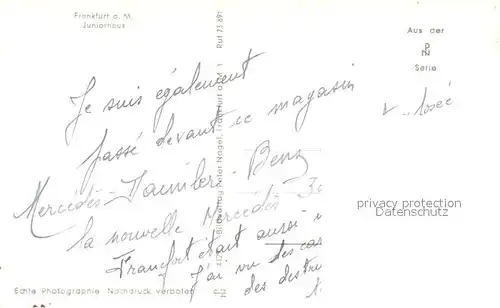 Frankfurt a. M.
Juniorhaus
Aus der
PN
Serie
Je suis également
passé devant ce magasin
Mercédès-Daimlers-Benz
la nouvelle Mercedes
Francfort était aussi
J'ai vu des cas
des destru
Bildverlag Peter Nagel, Frankfurt a. M. 1 Ruf 73 691
privacy protection
Datenschutz
Echte Photographie Nachdruck verboten